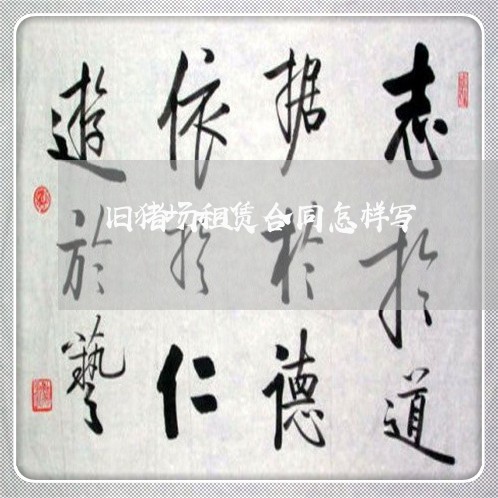 志於道
据於德
依於仁
遊於藝
旧猪场租赁合同怎样写